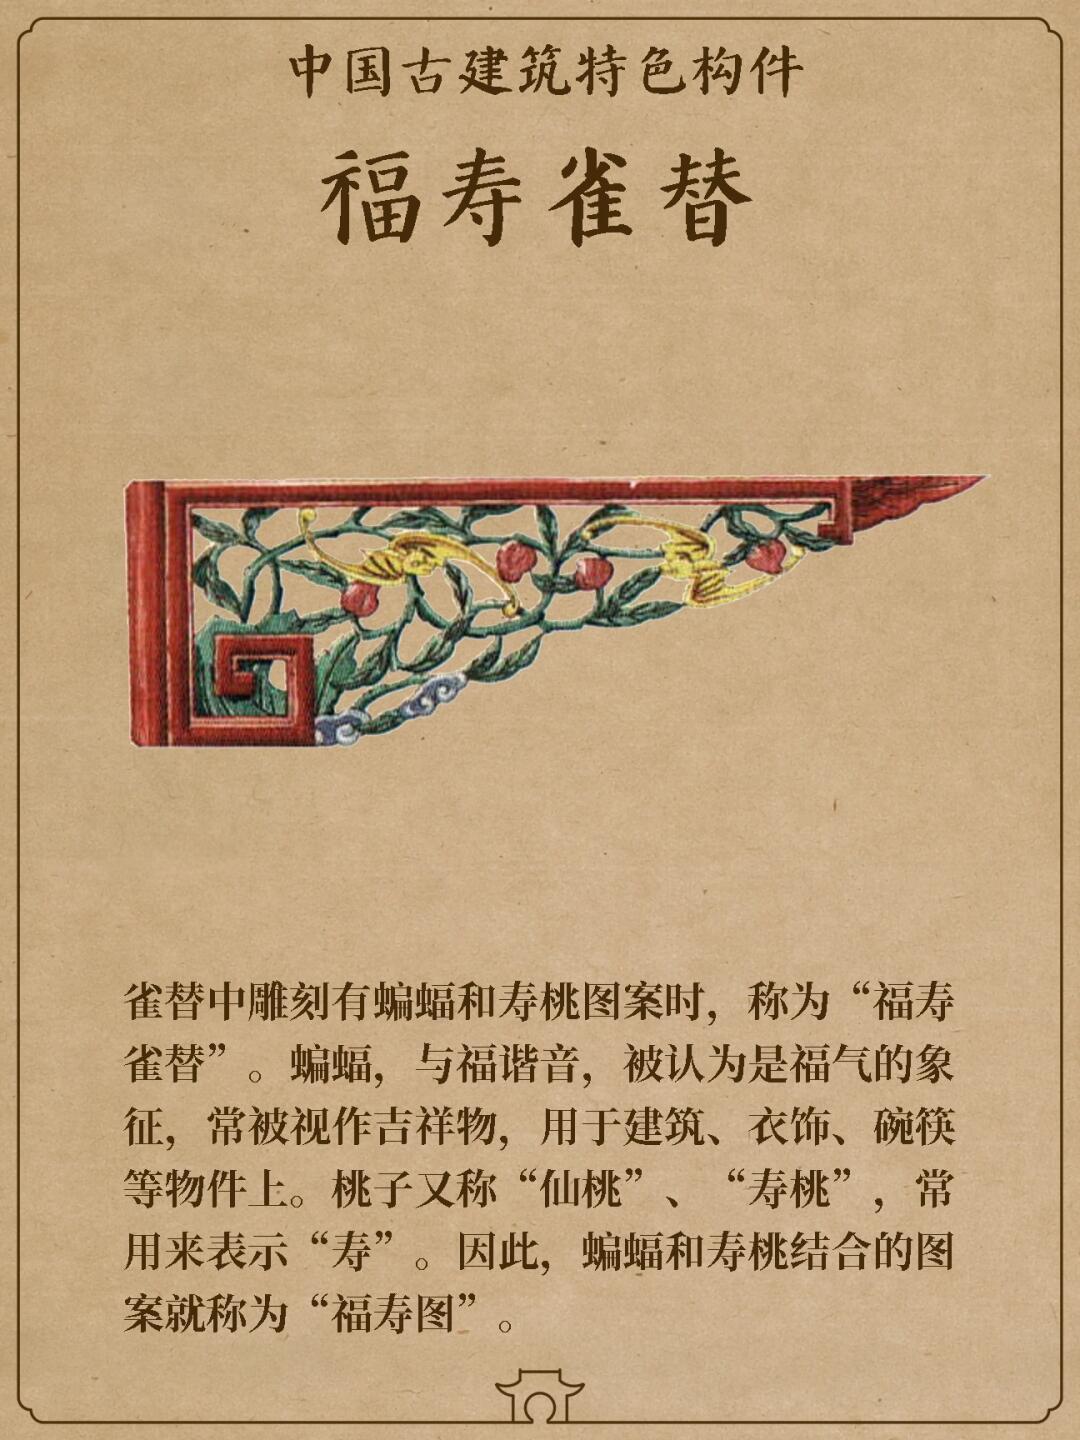 中国古建筑特色构件
福寿雀替
雀替中雕刻有蝙蝠和寿桃图案时，称为“福寿
雀替”。蝙蝠，与福谐音，被认为是福气的象
征，常被视作吉祥物，用于建筑、衣饰、碗筷
等物件上。桃子又称“仙桃”、“寿桃”，常
用来表示“寿”。因此，蝙蝠和寿桃结合的图
案就称为“福寿图”。